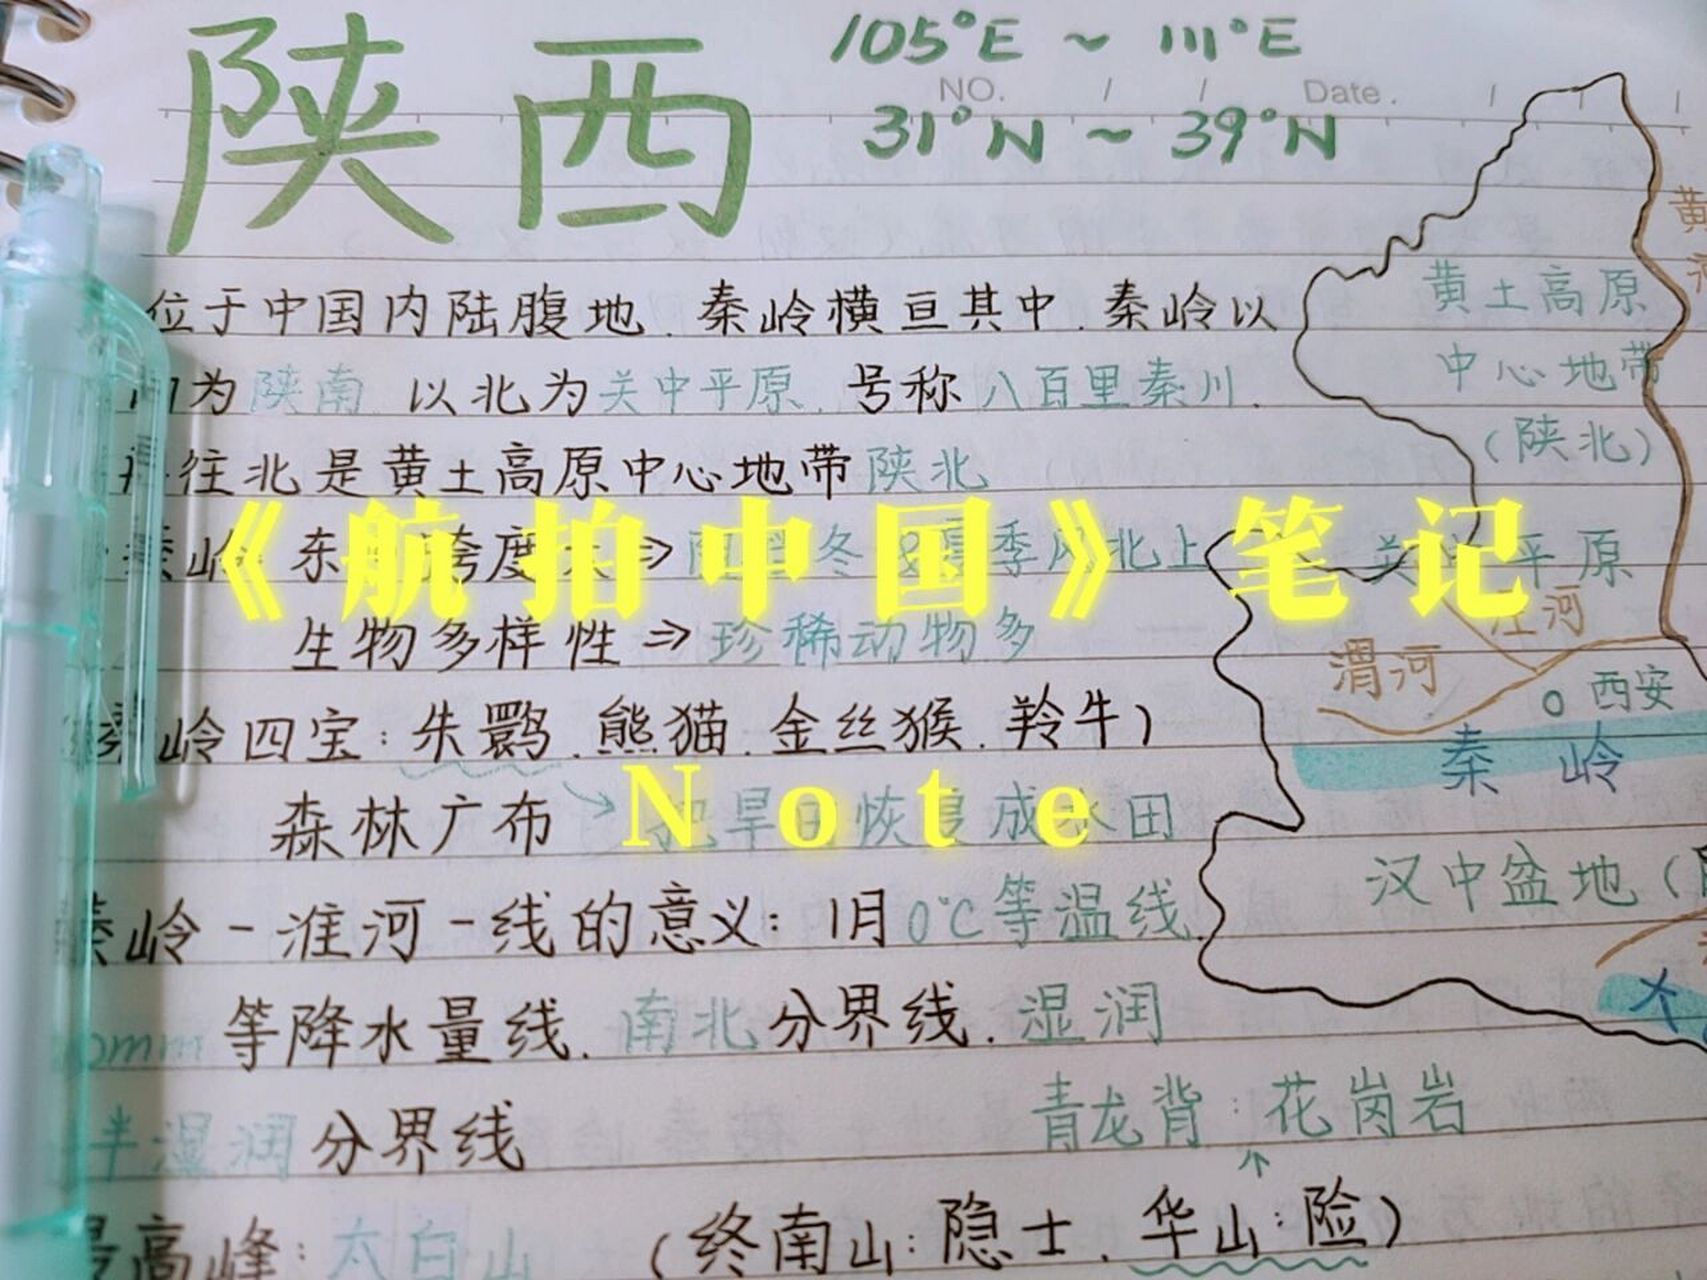 陕西
105°E ~ 111°E
NO. Date.
31°N ~ 39°N
位于中国内陆腹地.秦岭横亘其中.秦岭以
为陕南 以北为关中平原.号称八百里秦川.
往北是黄土高原中心地带陕北
秦岭 东 跨度大⇒ 冬 季风北上
《航拍中国》笔记
生物多样性⇒珍稀动物多
秦岭四宝:朱鹮.熊猫.金丝猴.羚牛)
森林广布 →把旱田恢复成水田
Note
秦岭-淮河-线的意义:1月0℃等温线.
0mm等降水量线.南北分界线.湿润
半湿润分界线
青龙背:花岗岩
↑
最高峰:太白山 (终南山:隐士.华山:险)
黄
黄土高原
中心地带
(陕北)
平原
渭河
西安
秦岭
汉中盆地(